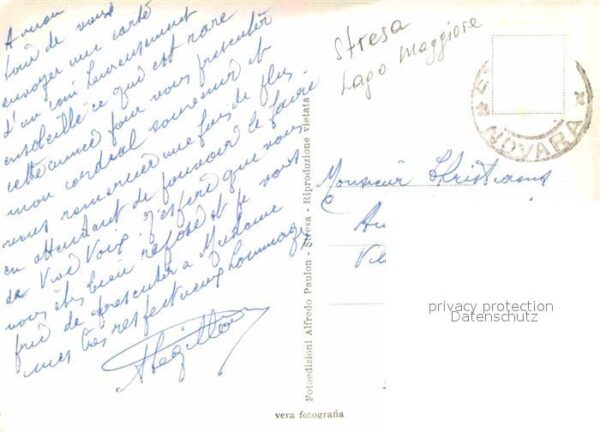 A mon
tour de vous
envoyer une carte
d'un coin heureusement
ensoleillé ce qui est rare
cette année pour vous présenter
mon cordial souvenir et
vous remercier une fois de plus
en attendant de pouvoir le faire
de Vive Voix. J'espère que vous
vous êtes bien reposé et je vous
prie de présenter à Madame
mes très respectueux hommages
Stresa
Lago Maggiore
NOVARA
Monsieur Christiaens
Fotoedizioni Alfredo Paulon - Stresa - Riproduzione vietata
vera fotografia
privacy protection
Datenschutz